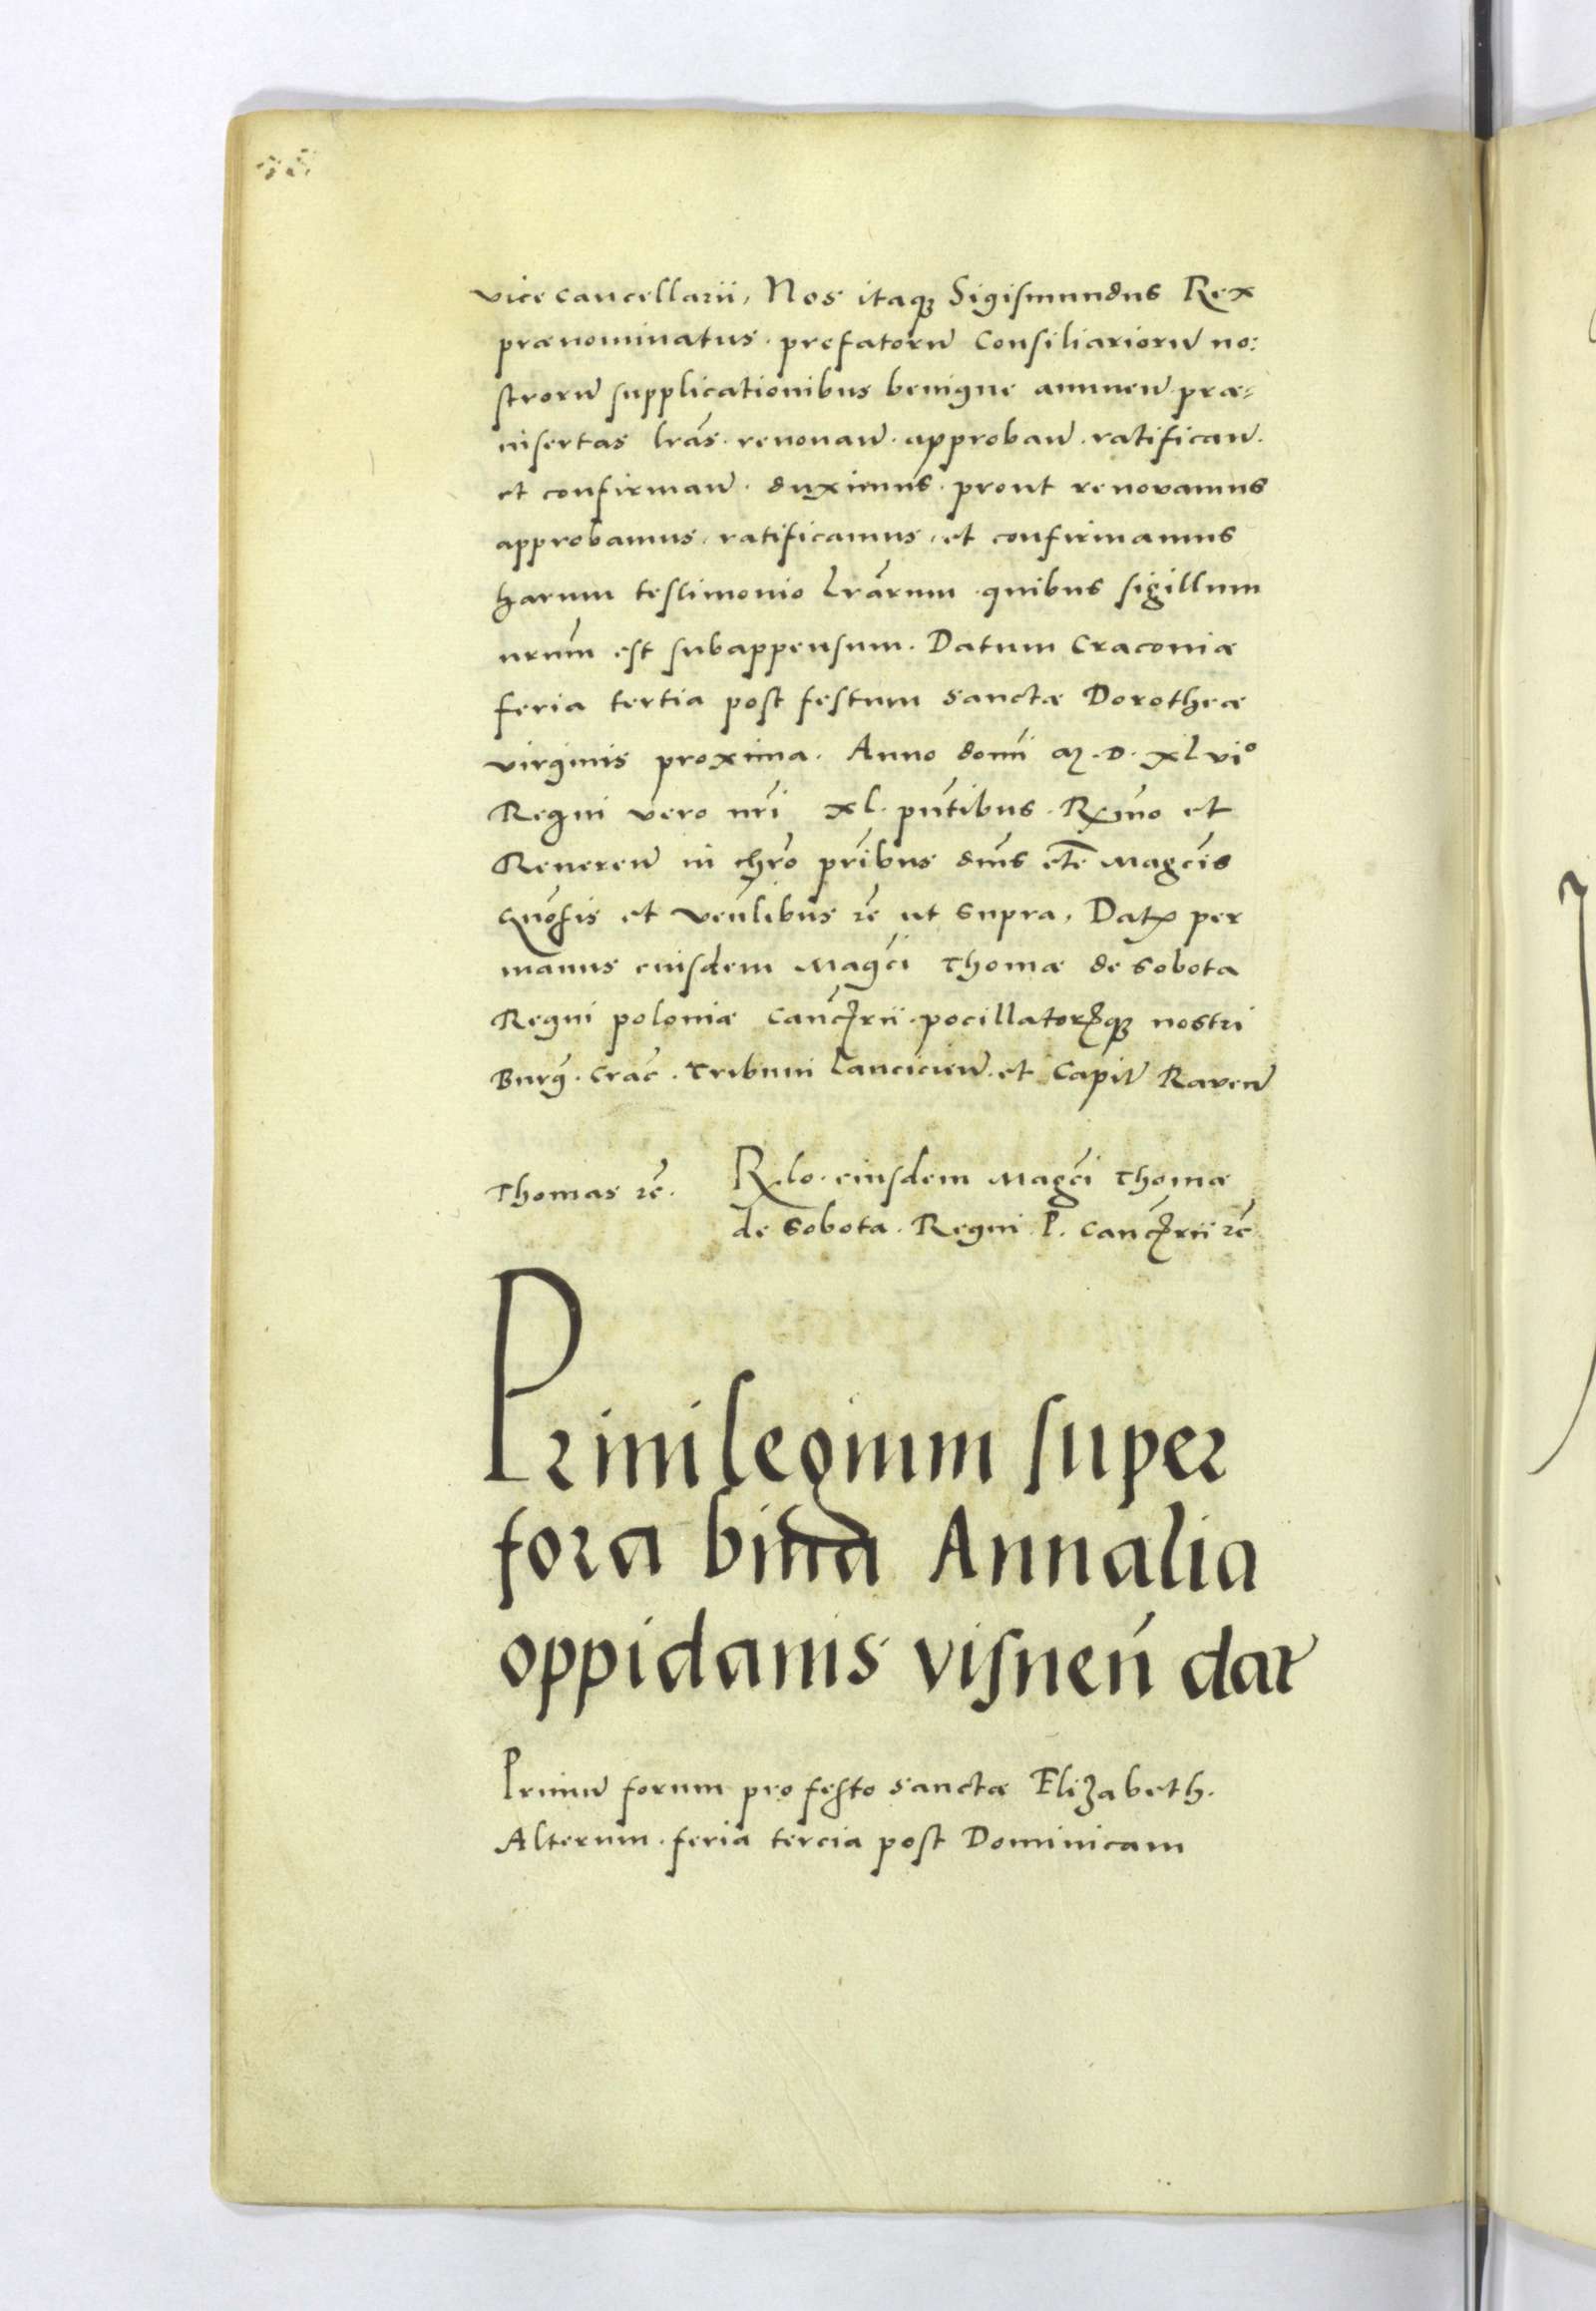 vice cancellarii, Nos itaq; Sigismundus Rex
prænominatus. prefatorũ Consiliariorũ no:
strorũ supplicationibus benigne annuen̄. præ-
insertas lrãs. renouan̄. approban̄. ratifican̄.
et confirman̄. duximus. prout renovamus
approbamus. ratificamus. et confirmamus
harum testimonio Lrãrum. quibus sigillum
nrum̃ est subappensum. Datum Craconiæ
feria tertia post festum sanctæ Dorotheæ
virginis proxima. Anno domĩ M. D. xlvi°
Regni vero nrĩ xl. pñtibus. Rx̃mo et
Reueren̄ in chrõ prĩbus dñis etc̃ Magcĩs
Gñosis et veñlibus ꝛc̃ ut supra, Datꝭ per
manus eiusdem Magcĩ Thomæ de Sobota
Regni poloniæ Cancꝭrii. pocillatorꝭq; nostri
Burg̃. Crac̃. Tribuni Lancicien̄. et Capiꝉ Raven̄
Thomas ꝛc̃. R̃lo. eiusdem Magcĩ Thomæ
de Sobota. Regni P. Cancꝭrii ꝛc̃
Priuilegium super
fora bina Annalia
oppidanis visneñ dat̃
Primũ forum pro festo sanctæ Elizabeth.
Alterum. feria tercia post Dominicam